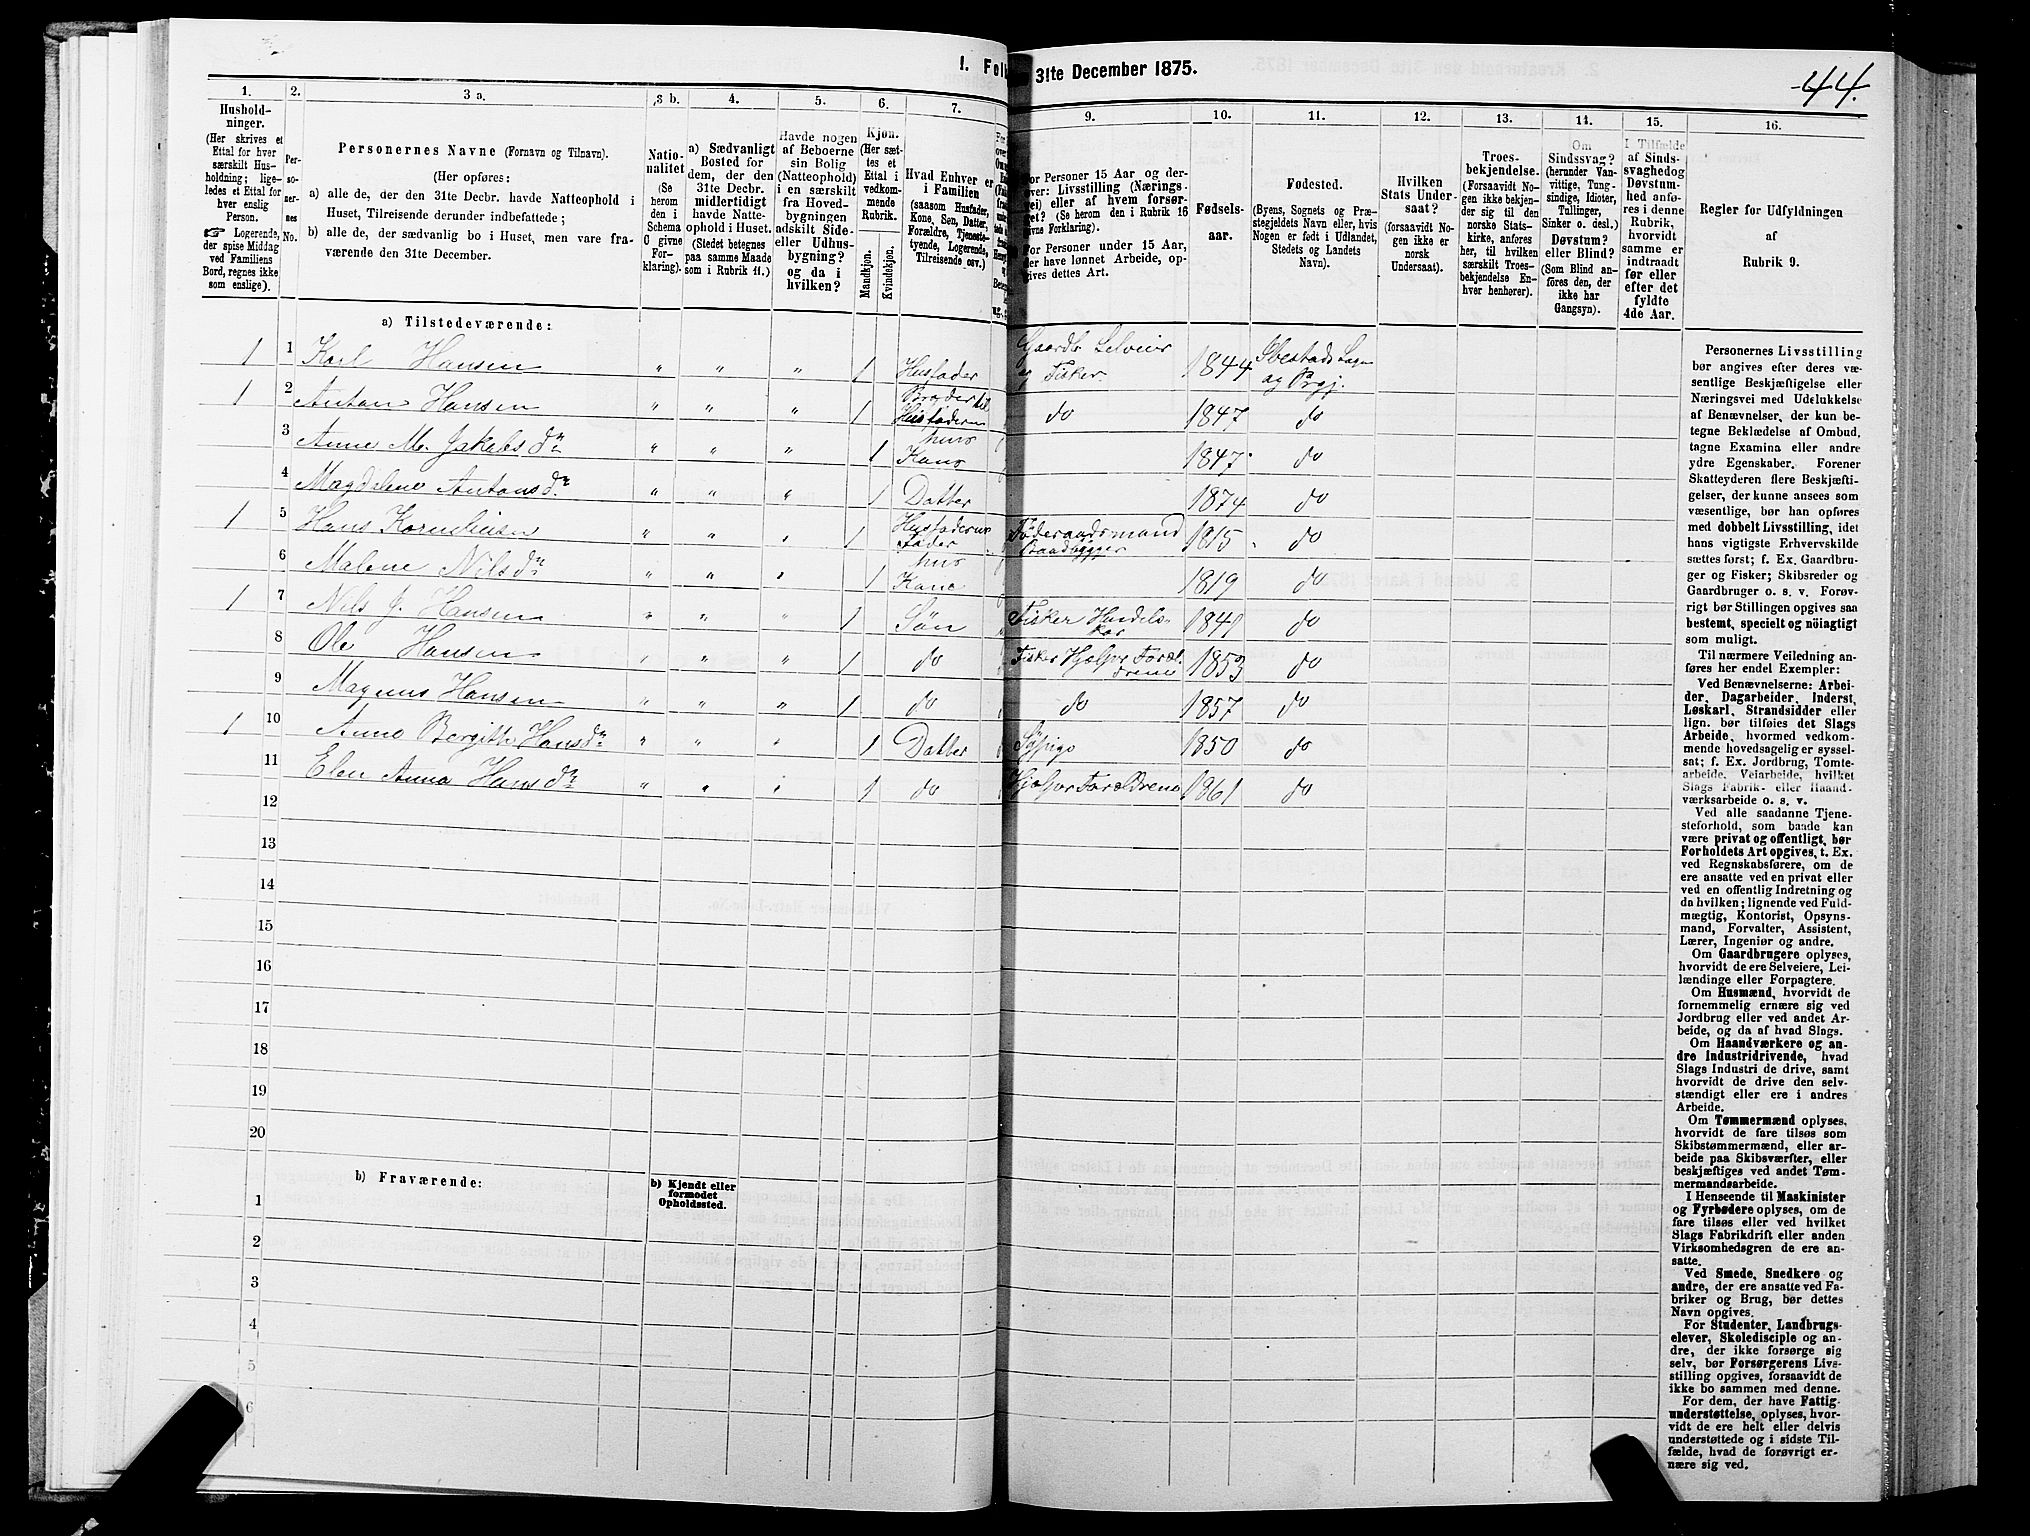 1. Folk
31te December 1875.
44.
1.
Hushold-
ninger.
(Her skrives et
Ettal for hver
særskilt Hus-
holdning; lige-
ledes et Ettal for
hver enslig
Person.
☞ Logerende,
der spise Middag
ved Familiens
Bord, regnes ikke
som enslige).
2.
Per-
so-
ner-
nes
No.
3 a.
Personernes Navne (Fornavn og Tilnavn).
(Her opføres:
a) alle de, der den 31te Decbr. havde Natteophold i
Huset, Tilreisende derunder indbefattede;
b) alle de, der sædvanlig bo i Huset, men vare fra-
værende den 31te December.
3 b.
Natio-
nalitet
(Se
herom
den i
Schema
O givne
For-
klaring).
4.
a) Sædvanligt
Bosted for
dem, der den
31te Decbr.
midlertidigt
havde Natte-
ophold i Huset.
(Stedet betegnes
paa samme Maade
som i Rubrik 11.)
5.
Havde nogen
af Beboerne
sin Bolig
(Natteophold)
i en særskilt
fra Hoved-
bygningen
adskilt Side-
eller Udhus-
bygning?
og da i
hvilken?
6.
Kjøn.
(Her sæt-
tes et
Ettal i
vedkom-
mende
Rubrik.
Mandkjøn.
Kvindekjøn.
7.
Hvad Enhver er
i Familien
(saasom Husfader,
Kone, Søn, Datter,
Forældre, Tjeneste-
tyende, Logerende,
Tilreisende osv.)
9.
For Personer 15 Aar og der-
over: Livsstilling (Nærings-
vei) eller af hvem forsør-
get? (Se herom den i Rubrik 16
givne Forklaring).
For Personer under 15 Aar,
der have lønnet Arbeide, op-
gives dettes Art.
10.
Fødsels-
aar.
11.
Fødested.
(Byens, Sognets og Præ-
stegjeldets Navn eller, hvis
Nogen er født i Udlandet,
Stedets og Landets
Navn).
12.
Hvilken
Stats Under-
saat?
(forsaavidt No-
gen ikke er
norsk
Undersaat).
13.
Troes-
bekjendelse.
(Forsaavidt No-
gen ikke bekjen-
der sig til den
norske Stats-
kirke, anføres
her, til hvilken
særskilt Troes-
bekjendelse En-
hver henhører).
14.
Om
Sindssvag?
(herunder Van-
vittige, Tung-
sindige, Idioter,
Tullinger,
Sinker o. desl.)
Døvstum?
eller Blind?
(Som Blind an-
føres den, der
ikke har
Gangsyn).
15.
I Tilfælde
af Sinds-
svaghed og
Døvstum-
hed anfø-
res i denne
Rubrik,
hvorvidt
samme er
indtraadt
før eller
efter det
fyldte
4de Aar.
16.
Regler for Udfyldningen
af
Rubrik 9.
a) Tilstedeværende:
1 1 Karl Hansen " " " 1 Husfader Gaardbr Selveier og Fisker. 1844 Ibestads Sogn og Prgj.
1 2 Anton Hansen " " " 1 Broder til Husfaderen do 1847 do
3 Anne M. Jakobsdr " " " 1 hans Kone 1847 do
4 Magdelene Antonsdr " " " 1 Datter 1874 do
1 5 Hans Korneliusen " " " 1 Husfaderens Fader Føderaadsmand Baadbygger 1815 do
6 Malene Nilsdr " " " 1 hans Kone 1819 do
1 7 Nils J. Hansen " " " 1 Søn Fisker Handels- kar 1841 do
8 Ole Hansen " " " 1 do Fisker Hjelper Foræl- drene 1853 do
9 Magnus Hansen " " " 1 do do 1857 do
1 10 Anne Bergitte Hansdr " " " 1 Datter Sypige 1850 do
11 Elen Anna Hansdr " " " 1 do Hjelper Forældrene 1861 do
12
13
14
15
16
17
18
19
20
b) Fraværende:
b) Kjendt eller
formodet
Opholdssted.
1
2
3
4
5
6
Personernes Livsstilling
bør angives efter deres væ-
sentlige Beskjæftigelse eller
Næringsvei med Udelukkelse
af Benævnelser, der kun be-
tegne Beklædelse af Ombud,
tagne Examina eller andre
ydre Egenskaber. Forener
Skatteyderen flere Beskjæfti-
gelser, der kunne ansees som
væsentlige, bør han opføres
med dobbelt Livsstilling, idet
hans vigtigste Erhvervskilde
sættes først; f. Ex. Gaardbru-
ger og Fisker; Skibsreder og
Gaardbruger o. s. v. Forøv-
rigt bør Stillingen opgives saa
bestemt, specielt og nöiagtigt
som muligt.
Til nærmere Veiledning an-
føres her endel Exempler:
Ved Benævnelserne: Arbei-
der, Dagarbeider, Inderst,
Løskarl, Strandsidder eller
lign. bør tilføies det Slags
Arbeide, hvormed vedkom-
mende hovedsagelig er syssel-
sat; f. Ex. Jordbrug, Tomte-
arbeide, Veiarbeide, hvilket
Slags Fabrik- eller Haand-
værksarbeide o. s. v.
Ved alle saadanne Tjene-
steforhold, som baade kan
være privat og offentligt, bør
Forholdets Art opgives, t. Ex.
ved Regnskabsførere, om de
ere ansatte ved en privat eller
ved en offentlig Indretning og
da hvilken; lignende ved Fuld-
mægtig, Kontorist, Opsyns-
mand, Forvalter, Assistent,
Lærer, Ingeniør og andre.
Om Gaardbrugere oplyses,
hvorvidt de ere Selveiere, Lei-
lændinge eller Forpagtere.
Om Husmænd, hvorvidt de
fornemmelig ernære sig ved
Jordbrug eller ved andet Ar-
beide, og da af hvad Slags.
Om Haandværkere og an-
dre Industridrivende, hvad
Slags Industri de drive, samt
hvorvidt de drive den selv-
stændigt eller ere i andres
Arbeide.
Om Tømmermænd oplyses,
hvorvidt de fare tilsøs som
Skibstømmermænd, eller ar-
beide paa Skibsværfter, eller
beskjæftiges ved andet Tøm-
mermandsarbeide.
I Henseende til Maskinister
og Fyrbødere oplyses, om de
fare tilsøs eller ved hvilket
Slags Fabrikdrift eller anden
Virksomhedsgren de ere an-
satte.
Ved Smede, Snedkere og
andre, der ere ansatte ved Fa-
briker og Brug, bør dettes
Navn opgives.
For Studenter, Landbrugs-
elever, Skoledisciple og an-
dre, der ikke forsørge sig
selv, bør Forsørgerens Livs-
stilling opgives, forsaavidt de
ikke bo sammen med denne.
For dem, der have Fattig-
understøttelse, oplyses, hvor-
vidt de ere helt eller delvis
understøttede og i sidste Til-
fælde, hvad de forøvrigt er-
nære sig ved.